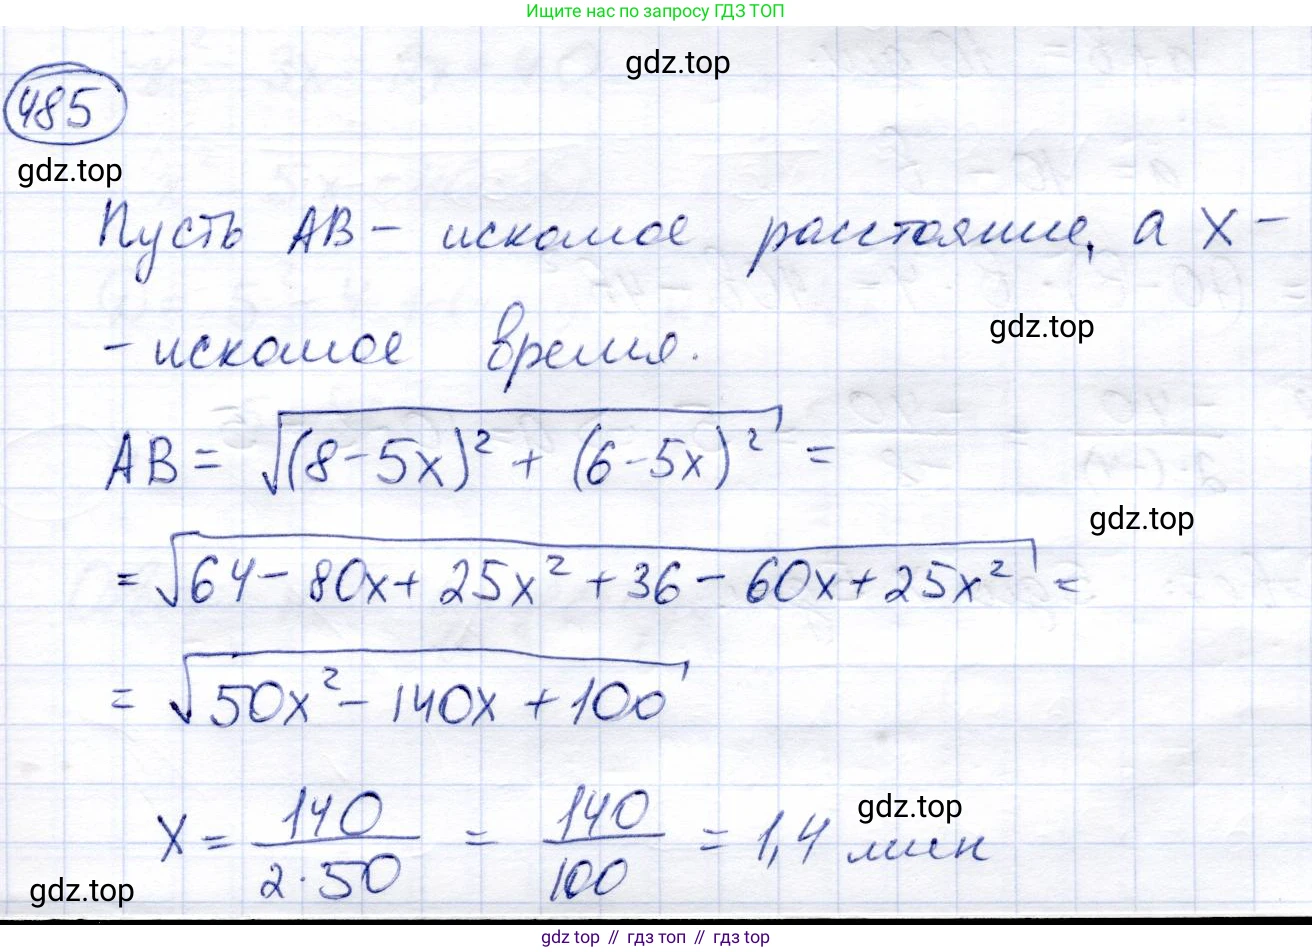 Ищите нас по запросу ГДЗ ТОП
gdz.top
485
gdz.top
Пусть AB - искомое расстояние, а X -
gdz.top
- искомое время.
AB = √((8-5x)² + (6-5x)²) =
gdz.top
= √(64 - 80x + 25x² + 36 - 60x + 25x²) =
= √(50x² - 140x + 100)
gdz.top
X = 140/(2·50) = 140/100 = 1,4 мин
gdz.top
gdz top // гдз топ // gdz top